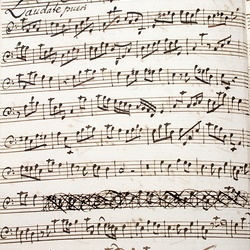 Laudate pueri